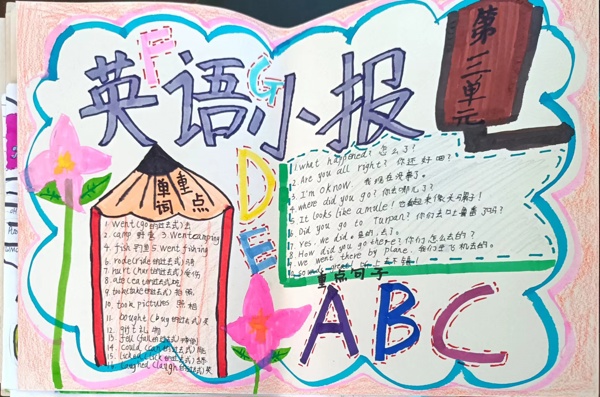 英语小报
F
G
第三单元
D
E
ABC
重点
单词
1. went (go的过去式)去
2. camp 野营 3. went camping
4. fish 钓鱼 5. went fishing
6. rode (ride的过去式)骑
7. hurt (hurt的过去式)受伤
8. ate (eat的过去式)吃
9. took (take的过去式)拍照
10. took pictures 照相
11. bought (buy的过去式)买
12. gift 礼物
13. fell (fall的过去式)
14. could (can的过去式)能
15. licked (lick的过去式)
16. laughed (laugh的过去式)笑
1. what happened? 怎么了?
2. Are you all right? 你还好吧?
3. I'm OK now. 我现在没事了。
4. where did you go? 你去哪儿了?
5. It looks like a mule! 它看起来像头骡子!
6. Did you go to Turpan? 你们去吐鲁番了吗?
7. Yes, we did. 是的,去了。
8. How did you go there? 你们怎么去的?
9. we went there by plane. 我们坐飞机去的。
重点句子